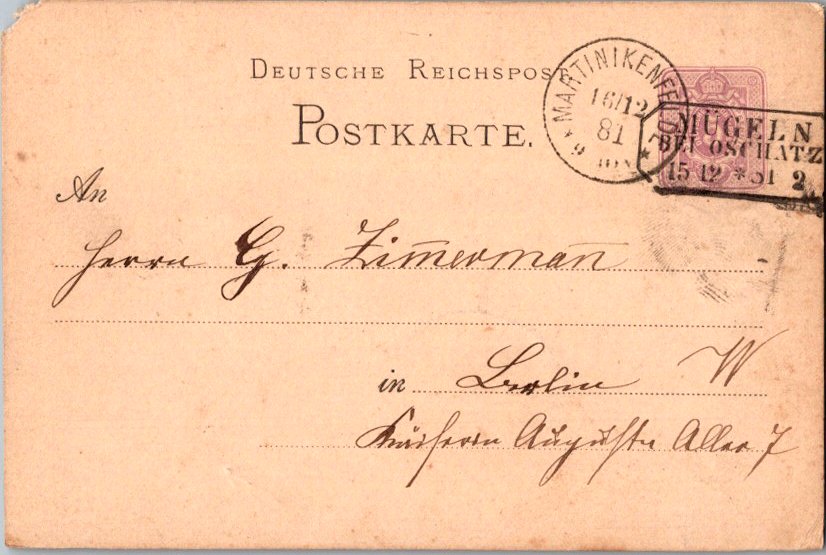 DEUTSCHE REICHSPOST
POSTKARTE.
MARTINIKENFELDE
16/12
81
MÜGELN
BEI OSCHATZ
15 12 * 81 2
An
Herrn G. Zim̅erman̅
in Berlin W
Kaiserin Augusta Allee 7